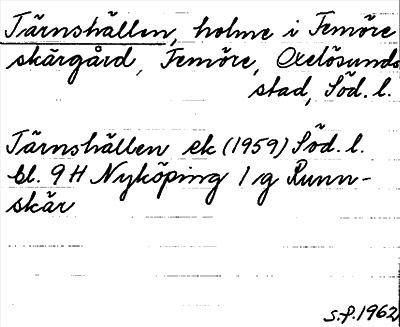 Tärnshällen, holme i Femöre
skärgård, Femöre, Oxelösunds
stad, Söd. l.
Tärnshällen ek (1959) Söd. l.
bl. 9 H Nyköping 1 g Runn-
skär
S.P. 1962